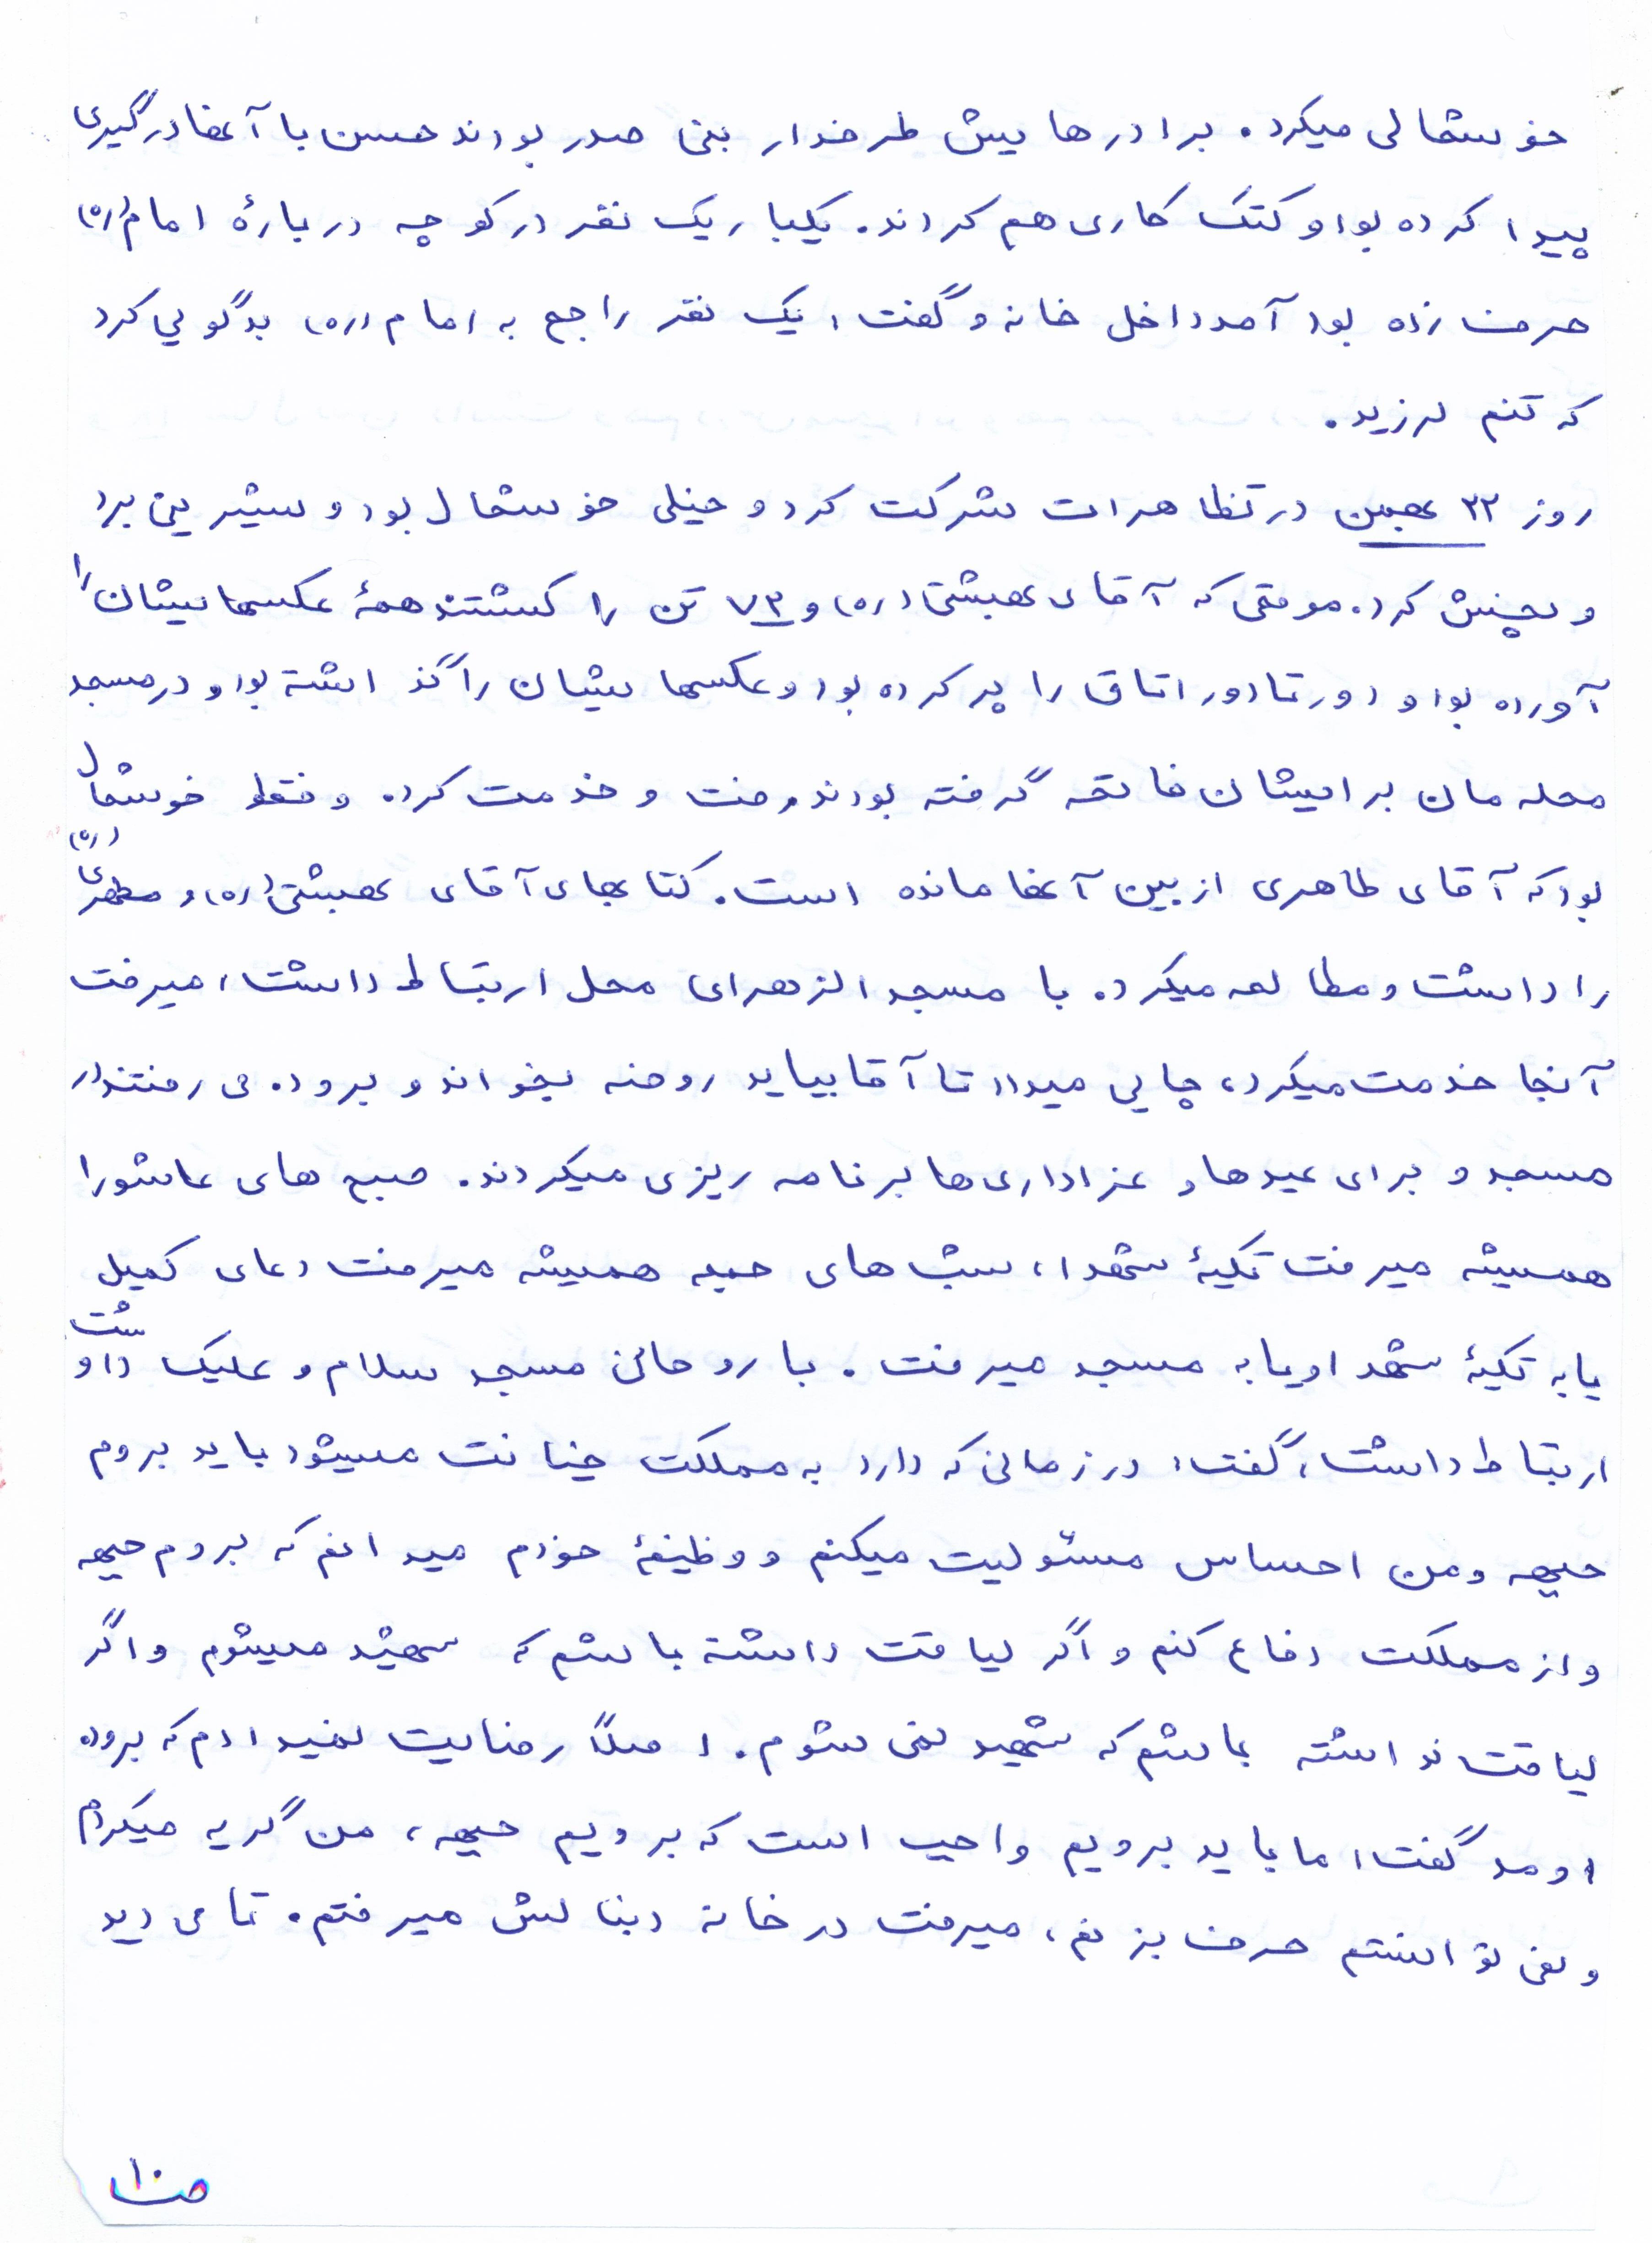 خوشحالی میکرد. برادرهایش طرفدار بنی صدر بودند حسن با آنها درگیری
پیدا کرده بود و کتک کاری هم کردند. یکبار یک نفر در کوچه دربارهٔ امام(ره)
حرف زده بود آمد داخل خانه و گفت: یک نفر راجع به امام(ره) بدگویی کرد
که تنم لرزید.
روز ۲۲ بهمن در تظاهرات شرکت کرد و خیلی خوشحال بود و شیرینی برد
و پخش کرد. موقعی که آقای بهشتی(ره) و ۷۳ تن را کشتند همهٔ عکسهایشان را
آورده بود و دور تا دور اتاق را پر کرده بود و عکسهایشان را گذاشته بود و در مسجد
محله مان برایشان فاتحه گرفته بودند رفت و خدمت کرد. و فقط خوشحال
بود که آقای طاهری از بین آنها مانده است. کتابهای آقای بهشتی(ره) و مطهری(ره)
را داشت و مطالعه میکرد. با مسجد الزهرای محل ارتباط داشت، میرفت
آنجا خدمت میکرد، چایی میداد تا آقا بیاید روضه بخواند و برود. می رفتند در
مسجد و برای عیدها و عزاداری ها برنامه ریزی میکردند. صبح های عاشورا
همیشه میرفت تکیهٔ شهدا، شب های جمعه همیشه میرفت دعای کمیل
یا به تکیهٔ شهدا و یا به مسجد میرفت. با روحانی مسجد سلام و علیک داشت و
ارتباط داشت، گفت: در زمانی که دارد به مملکت خیانت میشود باید بروم
جبهه و من احساس مسئولیت میکنم و وظیفهٔ خودم میدانم که بروم جبهه
و از مملکت دفاع کنم و اگر لیاقت داشته باشم که شهید میشوم و اگر
لیاقت نداشته باشم که شهید نمی شوم. اصلاً رضایت نمیدادم که برود.
اومد گفت: ما باید برویم واجب است که برویم جبهه، من گریه میکردم
و نمی توانستم حرف بزنم، میرفت در خانه دنبالش میرفتم. تا می دید
ص۱۰